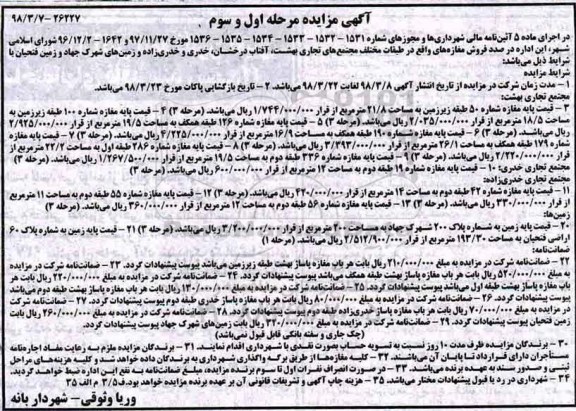 ۹۸/۳/۷-۲۶۲۲۷
آگهی مزایده مرحله اول و سوم
در اجرای ماده ۵ آئین‌نامه مالی شهرداری‌ها و مجوزهای شماره ۱۵۳۱ - ۱۵۳۲ - ۱۵۳۳ - ۱۵۳۴ - ۱۵۳۵ - ۱۵۳۶ مورخ ۹۷/۱۱/۲۷ و ۱۶۴۲ - ۹۶/۱۲/۲ شورای اسلامی
شهر، این اداره در صدد فروش مغازه‌های واقع در طبقات مختلف مجتمع‌های تجاری بهشت، آفتاب درخشان، خدری و خدری‌زاده و زمین‌های شهرک جهاد و زمین فتحیان با
شرایط ذیل می‌باشد:
شرایط مزایده
۱ - مدت زمان شرکت در مزایده از تاریخ انتشار آگهی ۹۸/۳/۸ لغایت ۹۸/۳/۲۲ می‌باشد. ۲ - تاریخ بازگشایی پاکات مورخ ۹۸/۳/۲۳ می‌باشد.
مجتمع تجاری بهشت:
۳ - قیمت پایه مغازه شماره ۵۰ طبقه زیرزمین به مساحت ۲۱/۸ مترمربع از قرار ۱/۷۴۴/۰۰۰/۰۰۰ ریال می‌باشد. (مرحله ۳) ۴ - قیمت پایه مغازه شماره ۱۰۰ طبقه زیرزمین به
مساحت ۱۸/۵ مترمربع از قرار ۲/۰۳۵/۰۰۰/۰۰۰ ریال می‌باشد. (مرحله ۳) ۵ - قیمت پایه مغازه شماره ۱۲۶ طبقه همکف به مساحت ۱۹/۵ مترمربع از قرار ۲/۹۲۵/۰۰۰/۰۰۰
ریال می‌باشد. (مرحله ۳) ۶ - قیمت پایه مغازه شماره ۱۹۰ طبقه همکف به مساحت ۱۶/۹ مترمربع از قرار ۴/۲۲۵/۰۰۰/۰۰۰ ریال می‌باشد. (مرحله ۳) ۷ - قیمت پایه مغازه
شماره ۱۷۹ طبقه همکف به مساحت ۲۶/۱ مترمربع از قرار ۳/۳۹۳/۰۰۰/۰۰۰ ریال می‌باشد. (مرحله ۳) ۸ - قیمت پایه مغازه شماره ۲۸۶ طبقه اول به مساحت ۲۲/۲ مترمربع از
قرار ۲/۲۲۰/۰۰۰/۰۰۰ ریال می‌باشد. (مرحله ۳) ۹ - قیمت پایه مغازه شماره ۳۳۶ طبقه دوم به مساحت ۱۹/۵ مترمربع از قرار ۱/۲۶۷/۵۰۰/۰۰۰ ریال می‌باشد. (مرحله ۳)
مجتمع تجاری خدری: ۱۰ - قیمت پایه مغازه شماره ۱۹ طبقه دوم به مساحت ۱۲ مترمربع از قرار ۶۰۰/۰۰۰/۰۰۰ ریال می‌باشد. (مرحله ۳)
مجتمع تجاری خدری‌زاده:
۱۱ - قیمت پایه مغازه شماره ۴۲ طبقه دوم به مساحت ۱۴ مترمربع از قرار ۴۲۰/۰۰۰/۰۰۰ ریال می‌باشد. (مرحله ۳) ۱۲ - قیمت پایه مغازه شماره ۵۵ طبقه دوم به مساحت ۱۱ مترمربع
از قرار ۳۳۰/۰۰۰/۰۰۰ ریال می‌باشد. (مرحله ۳) ۱۳ - قیمت پایه مغازه شماره ۵۶ طبقه دوم به مساحت ۱۲ مترمربع از قرار ۳۶۰/۰۰۰/۰۰۰ ریال می‌باشد. (مرحله ۳)
زمین‌ها:
۲۰ - قیمت پایه زمین به شماره پلاک ۲۰۰ شهرک جهاد به مساحت ۲۰۰ مترمربع از قرار ۳/۲۰۰/۰۰۰/۰۰۰ ریال می‌باشد. (مرحله ۳) ۲۱ - قیمت پایه زمین به شماره پلاک ۶۰
اراضی فتحیان به مساحت ۱۹۳/۳۰ مترمربع از قرار ۲/۵۱۲/۹۰۰/۰۰۰ ریال می‌باشد. (مرحله ۱)
ضمانت‌نامه:
۲۲ - ضمانت‌نامه شرکت در مزایده به مبلغ ۲۱۰/۰۰۰/۰۰۰ ریال بابت هر باب مغازه پاساژ بهشت طبقه زیرزمین می‌باشد پیوست پیشنهادات گردد. ۲۳ - ضمانت‌نامه شرکت در مزایده
به مبلغ ۵۲۰/۰۰۰/۰۰۰ ریال بابت هر باب مغازه پاساژ بهشت طبقه همکف می‌باشد پیوست پیشنهادات گردد. ۲۴ - ضمانت‌نامه شرکت در مزایده به مبلغ ۲۲۰/۰۰۰/۰۰۰ ریال بابت هر
باب مغازه پاساژ بهشت طبقه اول می‌باشد پیوست پیشنهادات گردد. ۲۵ - ضمانت‌نامه شرکت در مزایده به مبلغ ۱۳۰/۰۰۰/۰۰۰ ریال بابت هر باب مغازه پاساژ بهشت طبقه دوم می‌باشد
پیوست پیشنهادات گردد. ۲۶ - ضمانت‌نامه شرکت در مزایده به مبلغ ۸۰/۰۰۰/۰۰۰ ریال بابت هر باب مغازه پاساژ خدری طبقه دوم پیوست پیشنهادات گردد. ۲۷ - ضمانت‌نامه شرکت
در مزایده به مبلغ ۷۰/۰۰۰/۰۰۰ ریال بابت هر باب مغازه پاساژ خدری‌زاده طبقه دوم پیوست پیشنهادات گردد. ۲۸ - ضمانت‌نامه شرکت در مزایده به مبلغ ۲۶۰/۰۰۰/۰۰۰ ریال بابت
زمین فتحیان پیوست پیشنهادات گردد. ۲۹ - ضمانت‌نامه شرکت در مزایده به مبلغ ۳۲۰/۰۰۰/۰۰۰ ریال بابت زمین‌های شهرک جهاد پیوست پیشنهادات گردد.
(چک جاری و سفته بانکی قابل قبول نمی‌باشد)
۳۰ - برندگان مزایده ظرف مدت ۱۰ روز نسبت به تسویه حساب بصورت نقدی با شهرداری اقدام نمایند. ۳۱ - برندگان مزایده ملزم به رعایت مفاد اجاره‌نامه
مستأجران دارای قرارداد تا پایان آن می‌باشند. ۳۲ - کلیه مغازه‌ها از طریق برگه واگذاری شهرداری به برندگان داده خواهد شد و کلیه هزینه‌های مراحل
ثبتی و صدور سند به عهده برنده می‌باشد. ۳۳ - در صورت انصراف نفرات اول تا سوم برنده مزایده، مبلغ ضمانت‌نامه به نفع این اداره ضبط خواهد گردید.
۳۴ - شهرداری در رد یا قبول پیشنهادات مختار می‌باشد. ۳۵ - هزینه چاپ آگهی و تشریفات قانونی آن بر عهده برنده مزایده خواهد بود. ف۳/۵ م الف ۳۵
وریا وثوقی - شهردار بانه